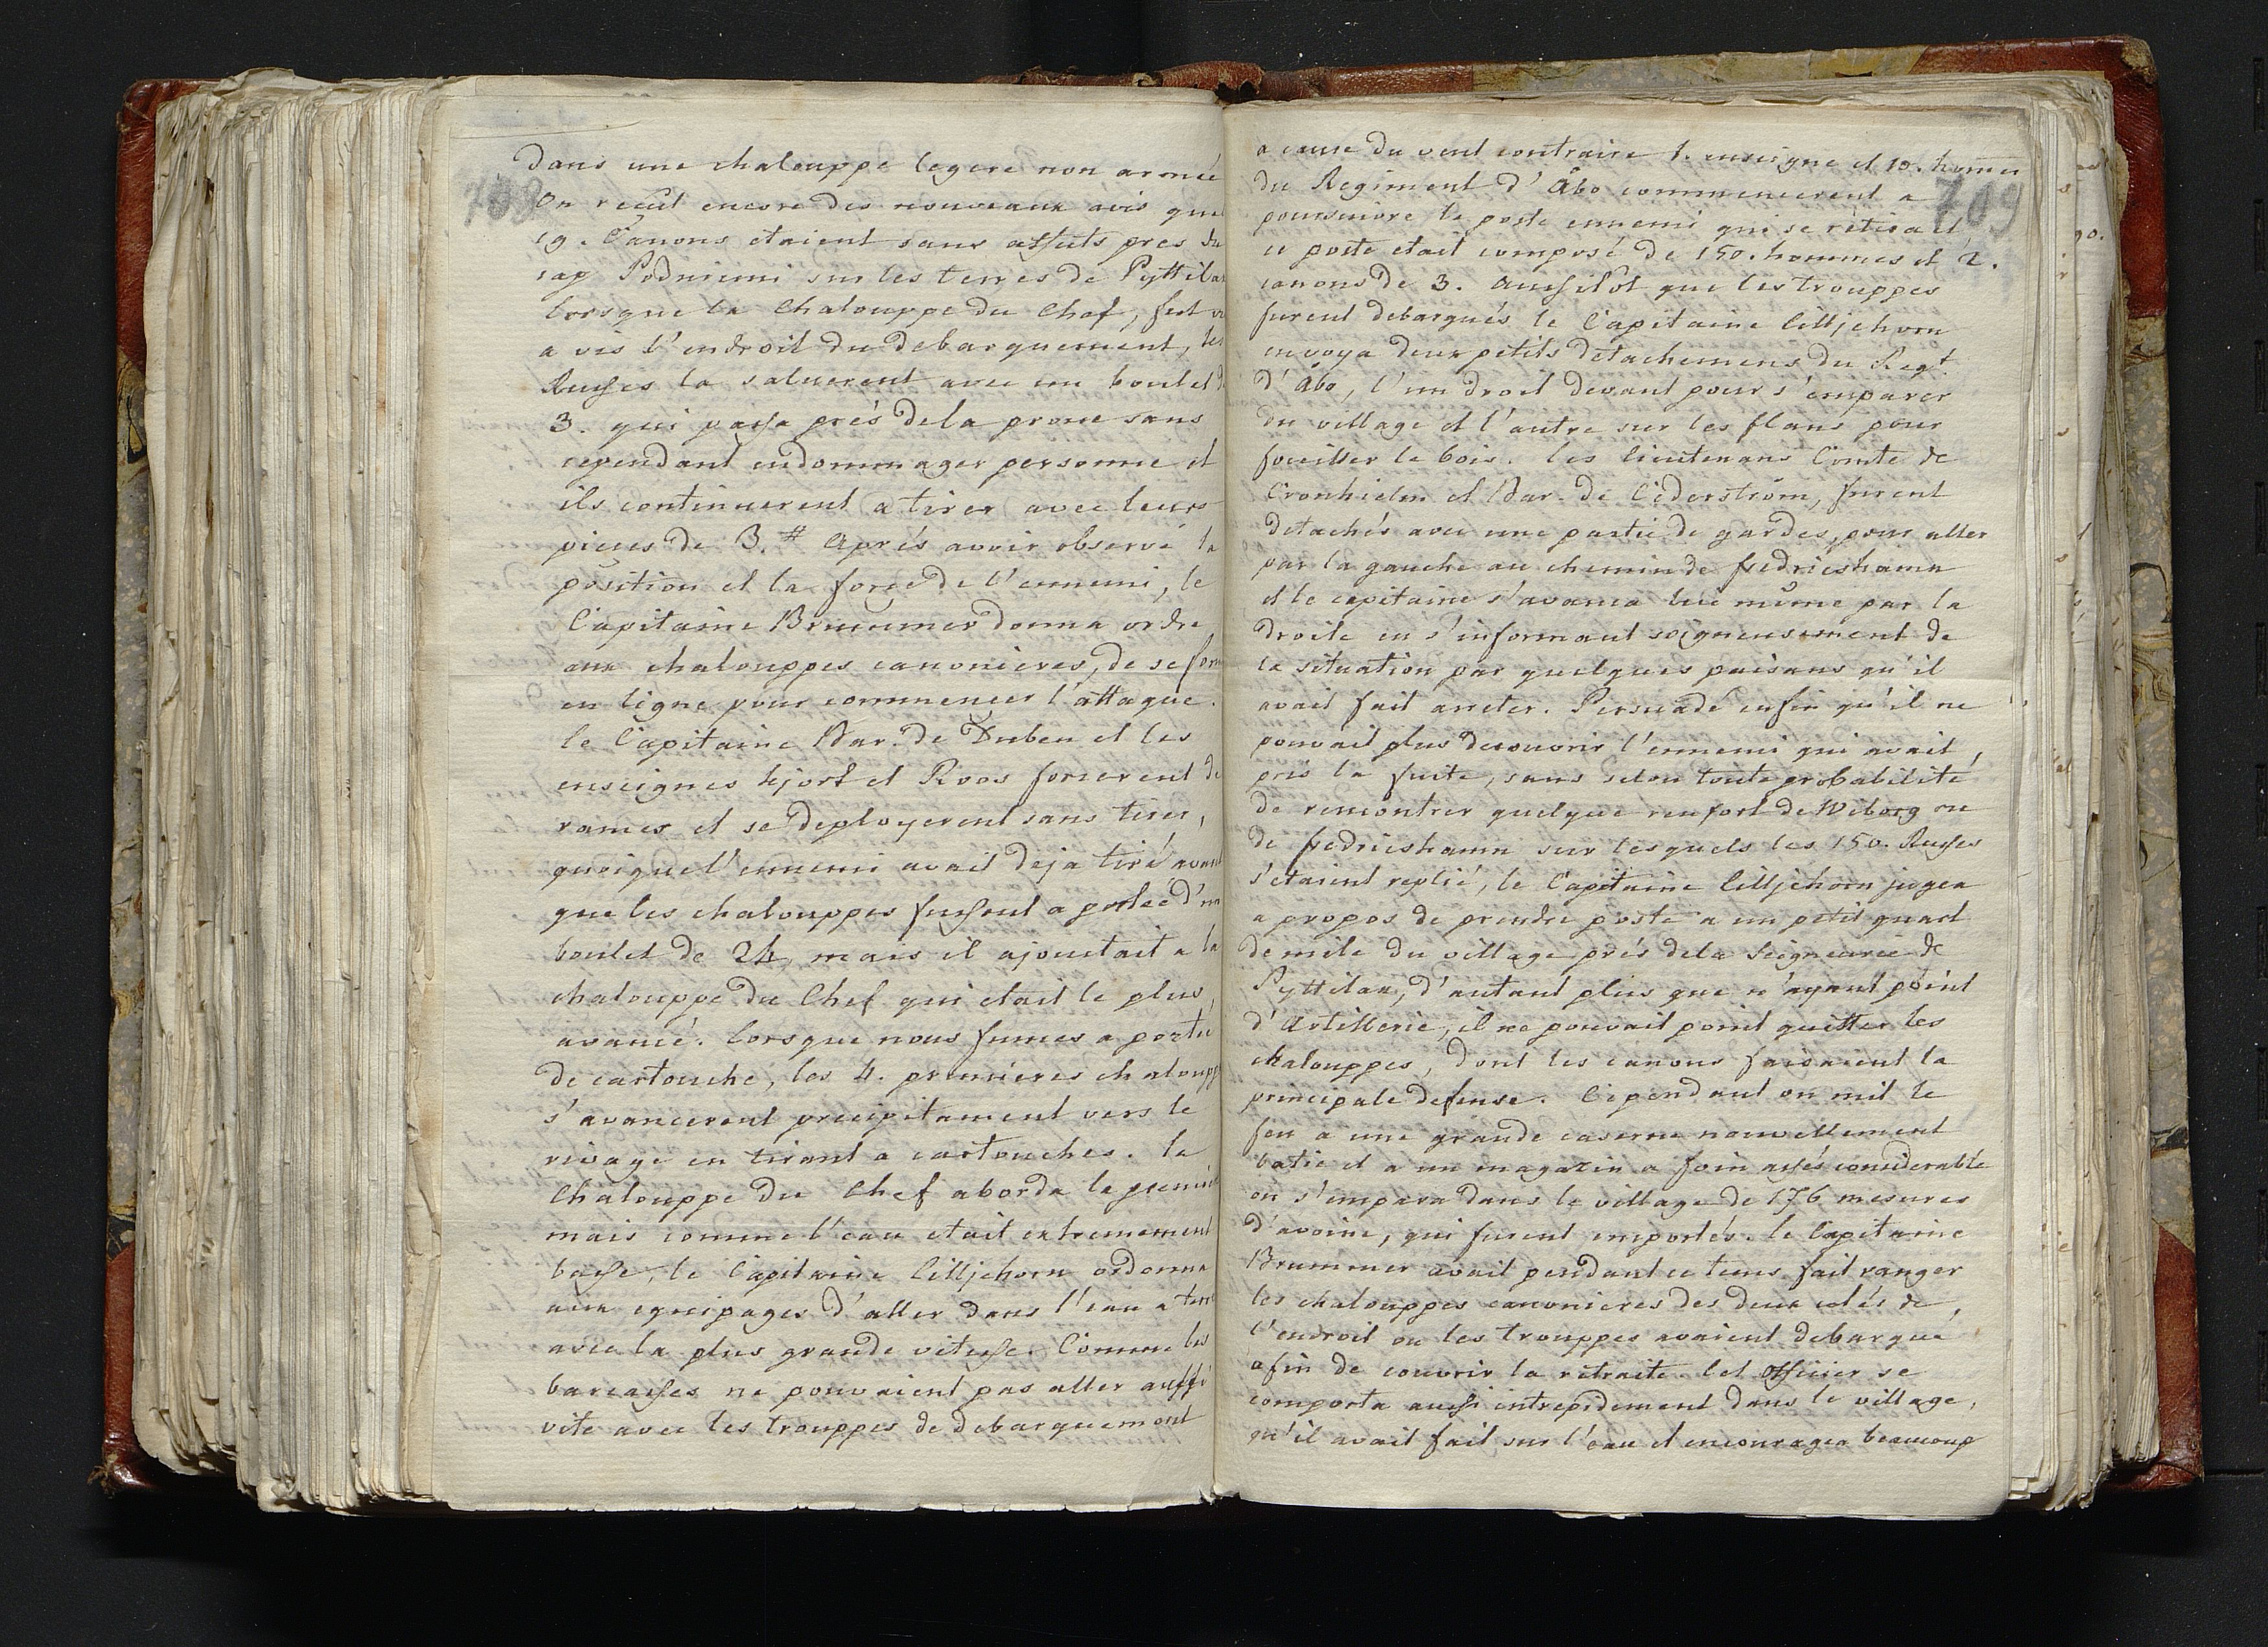 708
dans une chalouppe legere non armée
On recut encore des nouveaux avis que
19. Canons etaient sans affuts pres du
cap Podniemi sur les terres de Pyttila
lorsque la Chalouppe du Chef, fut vi
a vis l'endroit du debarquement, les
Russes la saluerent avec un boulet de
3. qui passa prés de la proue sans
cependant endommager personne et
ils continuerent a tirer avec leurs
pieces de 3.# Aprés avoir observé la
position et la force de l'ennemi, le
Capitaine Brummer donna ordre
aux chalouppes canonieres, de se form
en ligne pour commencer l'attaque.
le Capitaine Bar. de Duben et les
enseignes hjort et Roos forcerent de
rames et se deployerent sans tirer,
quoique l'ennemi avait deja tiré avant
que les chalouppes fussent a portée d'un
boulet de 24, mais il ajoutait a la
chalouppe du Chef qui etait le plus
avancé. lorsque nous fumes a portée
de cartouche, les 4. premieres chaloupp
s'avancerent precipitament vers le
rivage en tirant a cartouches. la
Chalouppe du Chef aborda la premiè
mais comme l'eau etait extremement
basse, le Capitaine Lilljehorn ordonna
aux equipages d'aller dans l'eau a terre
avec la plus grande vitesse. Comme les
barcasses ne pouvaient pas aller aussi
vite avec les trouppes de debarquement
709
a cause du vent contraire 1. enseigne et 10. homes
du Regiment d'Åbo commencerent a
poursuivre le poste ennemi qui se rétirait,
ce poste etait composé de 150. hommes et 2.
canons de 3. Aussitôt que les trouppes
furent debarqués le Capitaine Lilljehorn
envoya deux petits detachemens du Regt
d'Åbo, l'un droit devant pour s'emparer
du village et l'autre sur les flans pour
fouiller le bois. les lieutenans Comte de
Cronhielm et Bar. de Cederström, furent
detachés avec une partie de gardes, pour aller
par la gauche au chemin de fredricshamn
et le capitaine s'avança lui même par la
droite en s'informant soigneusement de
la situation par quelques paisans qu'il
avait fait arreter. Persuadé enfin qu'il ne
pouvait plus decouvrir l'ennemi qui avait
pris la fuite, sans selon toute probabilité
de rencontrer quelque renfort de Wiborg ou
de fredricshamn sur lesquels les 150. Russes
s'etaient replié, le Capitaine Lilljehorn jugea
a propos de prendre poste a un petit quart
de mile du village prés de la Seigneurie de
Pyttilax, d'autant plus que n'ayant point
d'Artillerie, il ne pouvait point quitter les
chalouppes, dont les canons faisaient la
principale defense. Cependant on mit le
feu a une grande caserne nouvellement
batie et a un magazin a foin assés considerable
on s'empara dans le village de 176 mesures
d'avoine, qui furent emportés. le Capitaine
Brummer avait pendant ce tems fait ranger
les chalouppes canonieres des deux cotés de
l'endroit ou les trouppes avaient debarqué
afin de couvrir la retraite. Cet Officier se
comporta aussi intrepidement dans le village,
qu'il avait fait sur l'eau et encouragea beaucoup